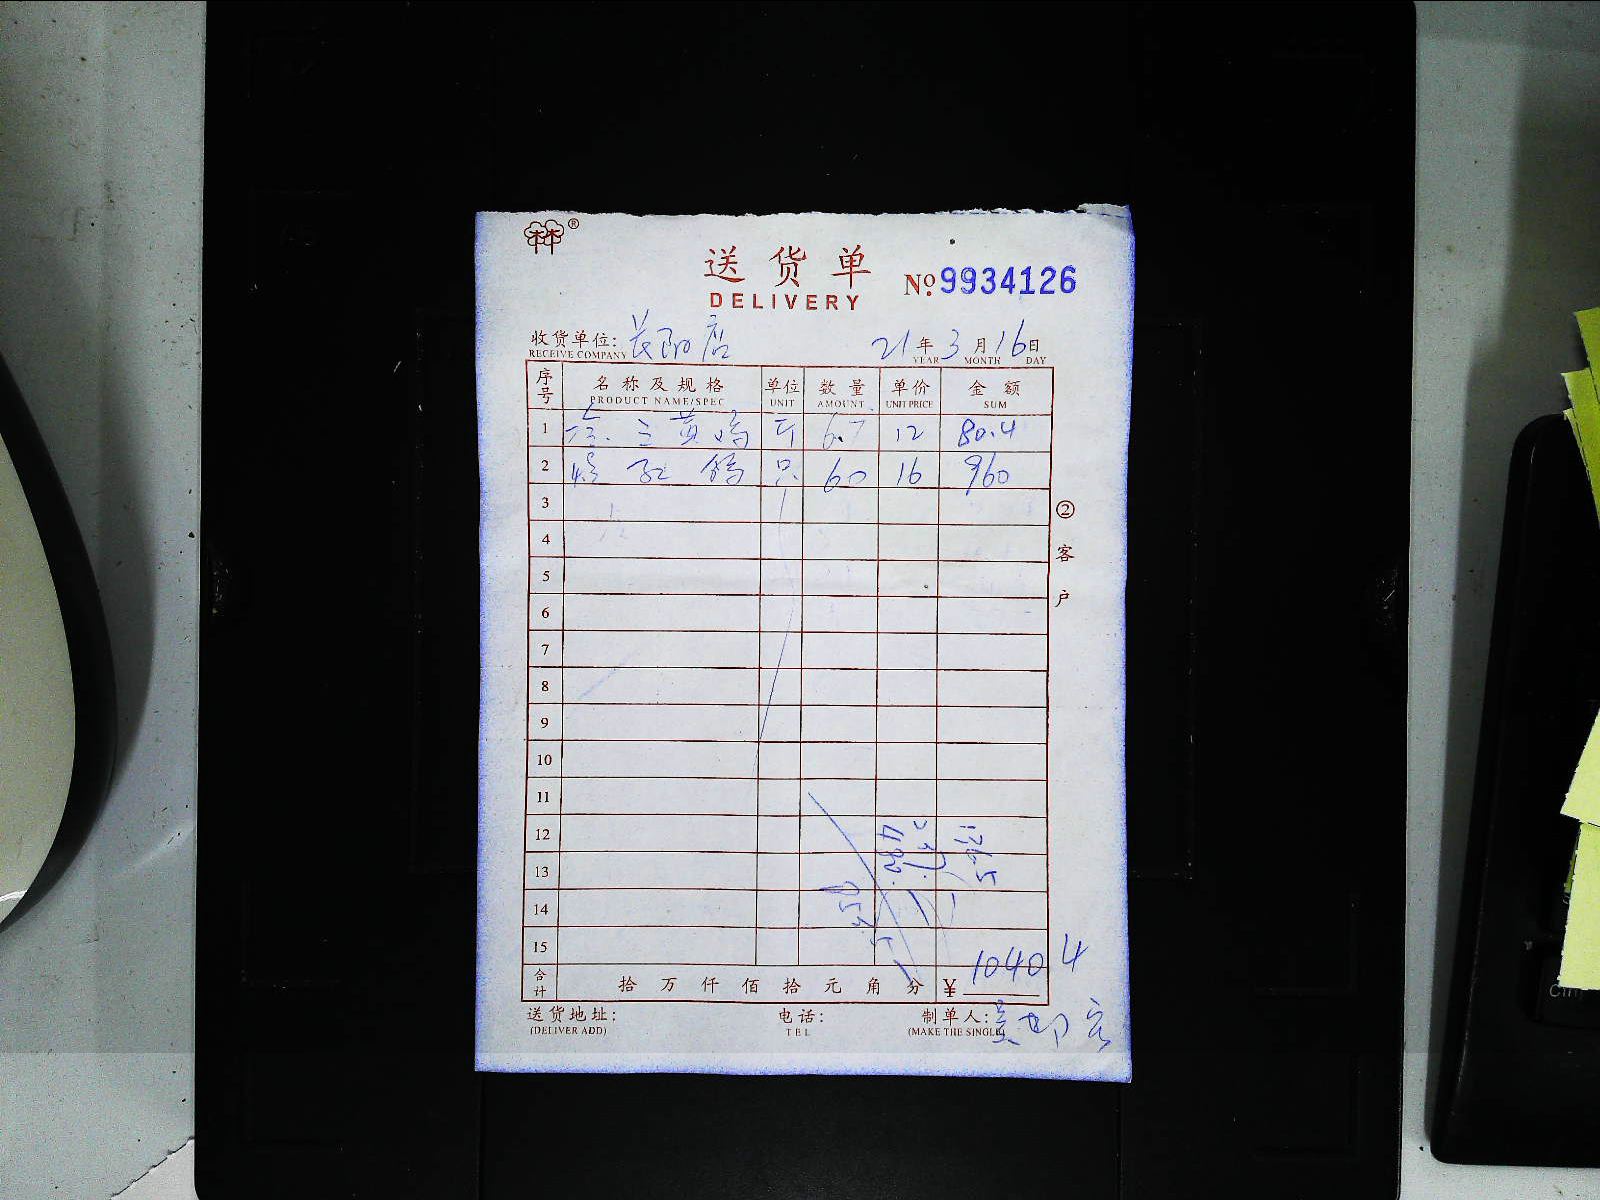 林®
送货单
DELIVERY
№ 9934126
收货单位: 长阳店 21年3月16日
RECEIVE COMPANY YEAR MONTH DAY
序号 名称及规格 单位 数量 单价 金额
PRODUCT NAME/SPEC UNIT AMOUNT UNIT PRICE SUM
1 三黄鸡 斤 6.7 12 80.4
2 红鸽 只 60 16 960
3
4
5
6
7
8
9
10
11
12
13
14
15
合计 拾 万 仟 佰 拾 元 角 分 ¥ 1040.4
送货地址: 电话: 制单人:
(DELIVER ADD) TEL (MAKE THE SINGLE)
②客户